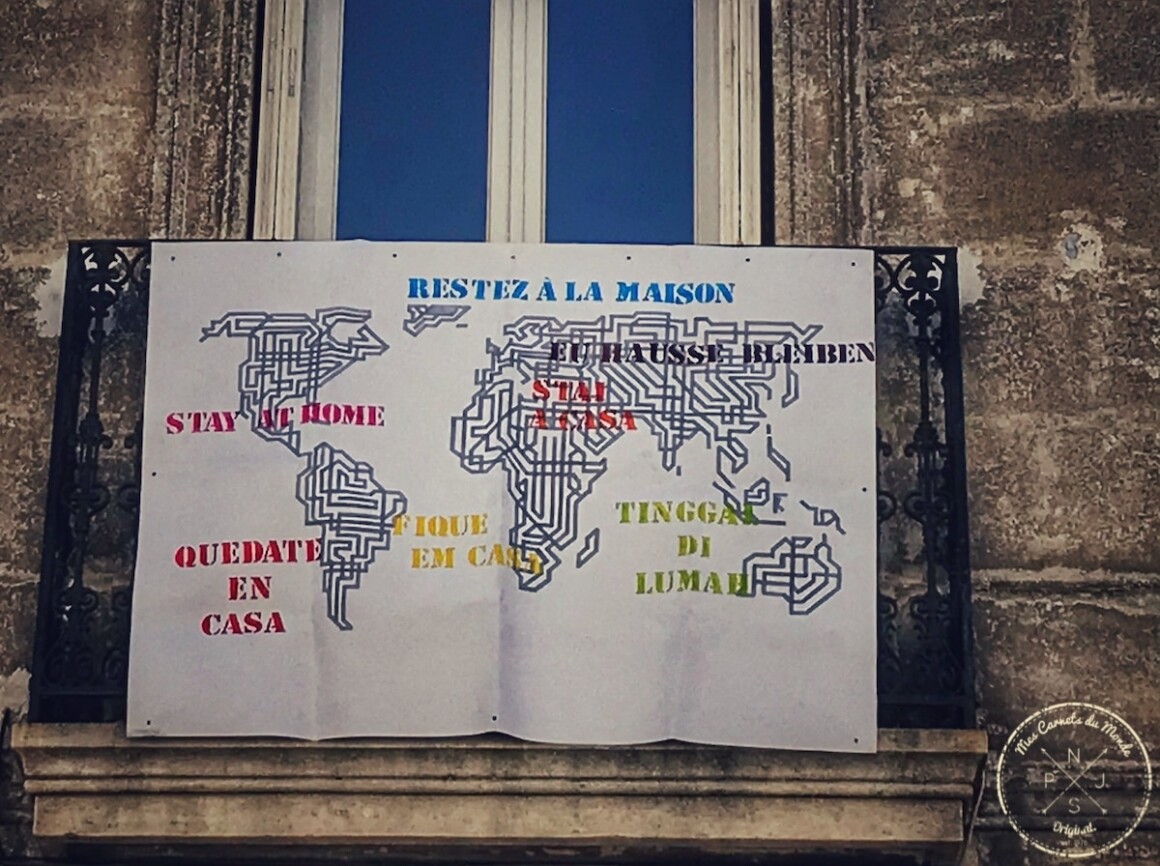 RESTEZ À LA MAISON
EU HAUSSE BLEIBEN
STAI
A CASA
STAY AT HOME
FIQUE
EM CASA
TINGGAL
DI
LUMAH
QUEDATE
EN
CASA
Mes Carnets du Monde
N
P J
S
Original